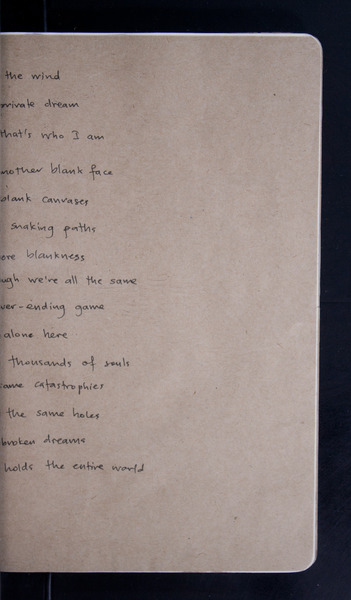 the wind
private dream
that's who I am
another blank face
blank canvases
snaking paths
ore blankness
ugh we're all the same
ver-ending game
alone here
thousands of souls
same catastrophies
the same holes
broken dreams
holds the entire world